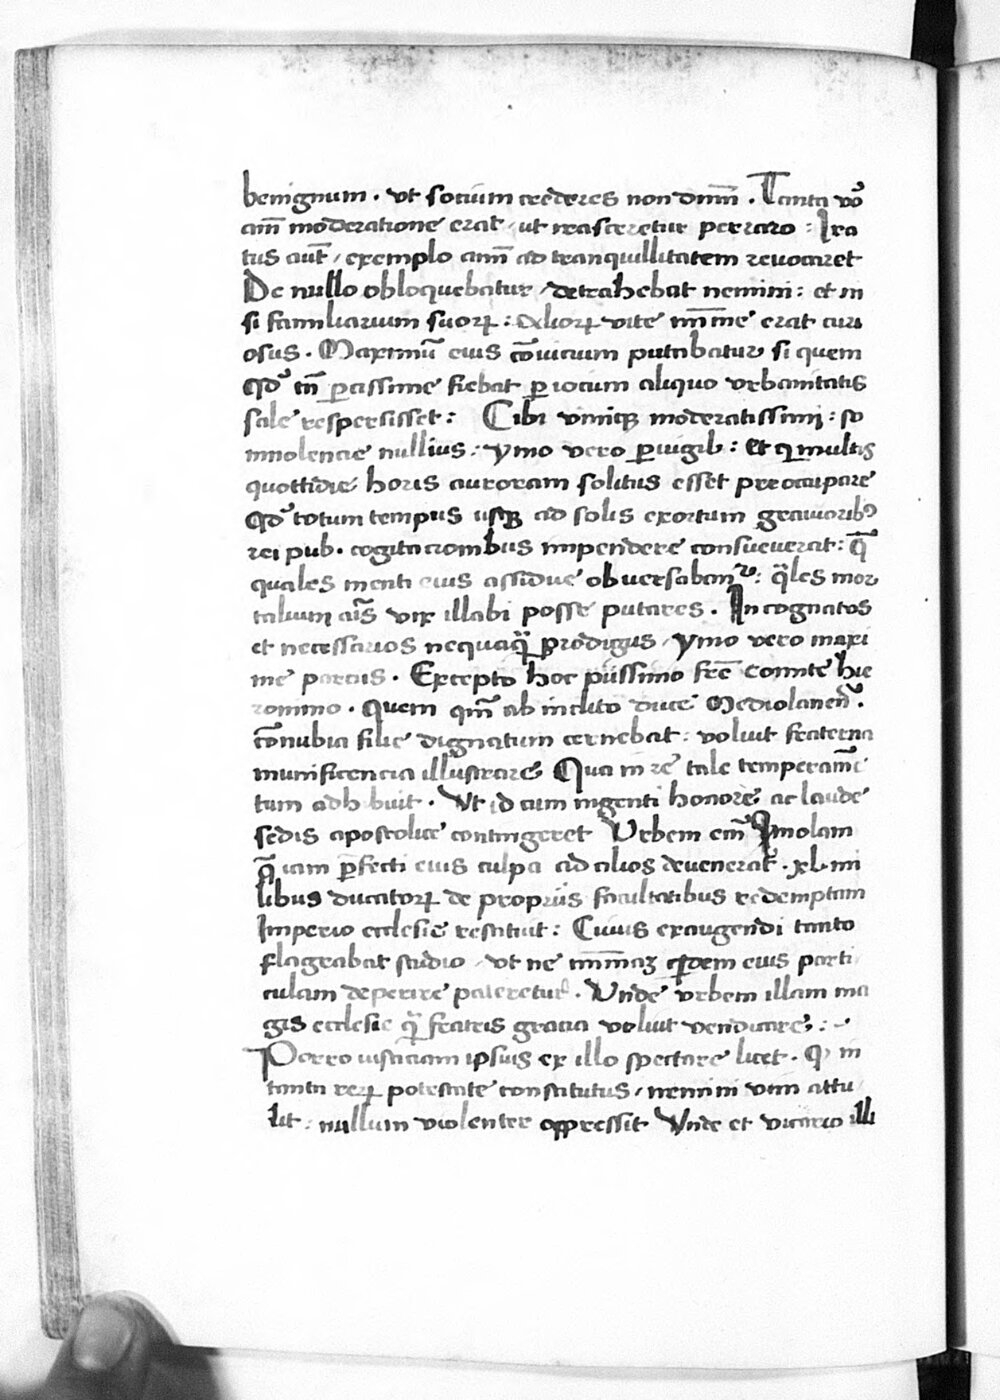 benignum . vt socium crederes non dn̄m . Tanta vͦo
aīm moderatione erat / ut irasceretur perraro : Ira
tus aūt / exemplo aīm ad tranquillitatem reuocaret
De nullo obloquebatur / detrahebat nemini : et ni
si familiarium suoꝝ : alioꝝ vite mīme erat curi
osus . Maximū eius cōuicium putabatur si quem
qđ tn̄ ꝑcissime fiebat ꝑ iocum aliquo vrbanitatis
sale respersisset : Cibi viniqꝫ moderatissimi : so
mnolencie nullius : ymo vero ꝑuigil : et qui multis
quottidie horis auroram solitus esset preoccupare
qđ totum tempus usqꝫ ad solis exortum grauioribꝰ
rei pub . cogitacionibus impendere consueuerat : q̄
quales menti eius assidue obuersabanᷣ : q̄les mor
talium aīs vix illabi posse putares . In cognatos
et necessarios nequaq̄ prodigus / ymo vero maxi
me parcus . Excepto hoc piissimo frē Comite hie
ronimo . Quem qm̄ ab inclito duce Mediolaneñ .
cōnubia filie dignatum cernebat : voluit fraterna
munificencia illustrare Qua in re tale temperamē
tum adhibuit . Vt id cum ingenti honore ac laude
sedis apostolice contingeret Vrbem em̄ Imolam
q̄ iam p̄fecti eius culpa ad alios deuenerat . xl . mi
libus ducatoꝝ de propriis facultatibus redemptam
Imperio ecclesie restituit : Cuius exaugendi tanto
flagrabat studio / vt ne mīmaꝫ qͥdem eius parti
culam deperire pateretur . Vnde vrbem illam ma
gis ecclesie q̄ fratris gracia voluit vendicare : -
Porro iusticiam ipsius ex illo spectare licet . Qꝫ in
tanta reꝝ potestate constitutus / nemini vim attu
lit : nullum violenter oppressit Vnde et vicario illi